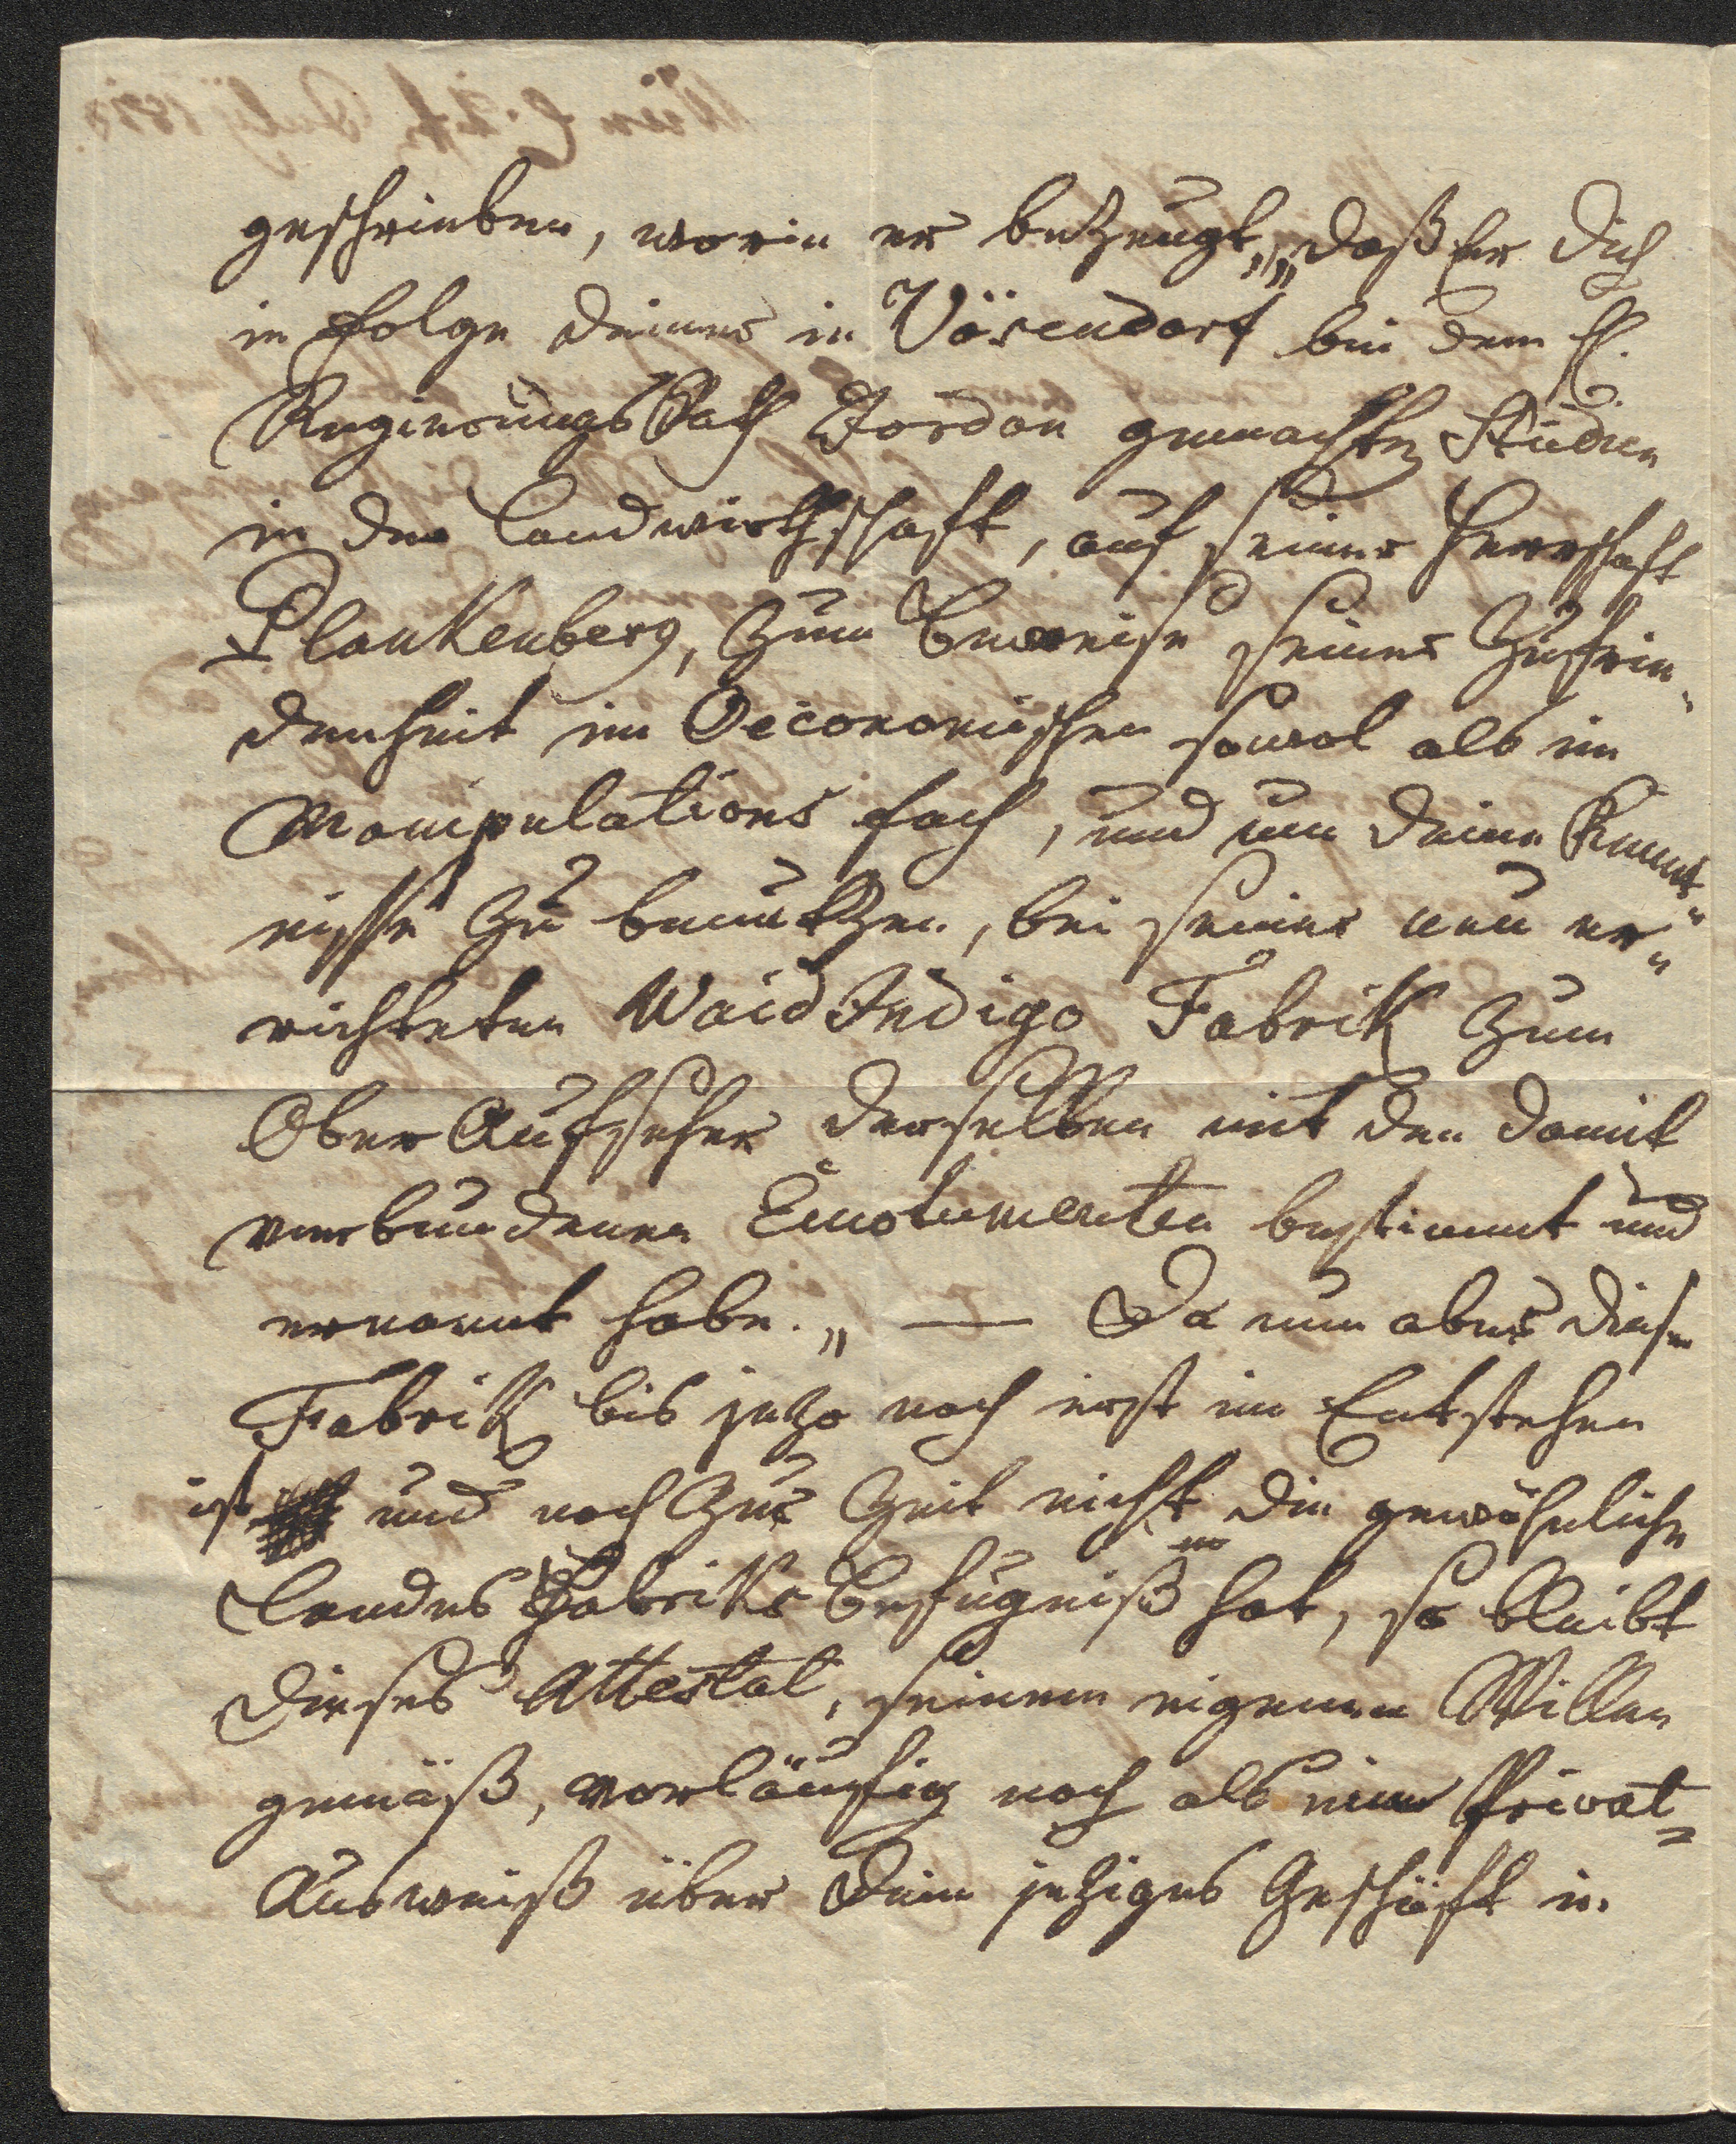 geschrieben, worin er bezeugt, „daß Er Dich
in folge deiner in Vösendorf bei dem H.
Regierungs Rath Jordan gemachten Studien
in der Landwirthschaft, auf seiner Herrschaft
Plankenberg, zum Beweise seiner Zufrie„
denheit im Oeconomischen sowol als im
Manipulations fach, und um deine Kennt„
nisse zu benützen, bei seiner neu er„
richteten Waid Indigo Fabrik zum
Ober Aufseher derselben mit den damit
verbundenen Emolumenten bestimmt und
ernannt habe. „ — Da nun aber diese
Fabrik bis jetzo noch erst im Entstehen
ist und noch zur Zeit nicht die gewöhnliche
Landes Fabriks Befugniß hat, so bleibt
dieses Attestat, seinem eigenen Willen
gemäß, vorläufig noch als ein Privat„
Ausweiß über dein jetziges Geschäft in